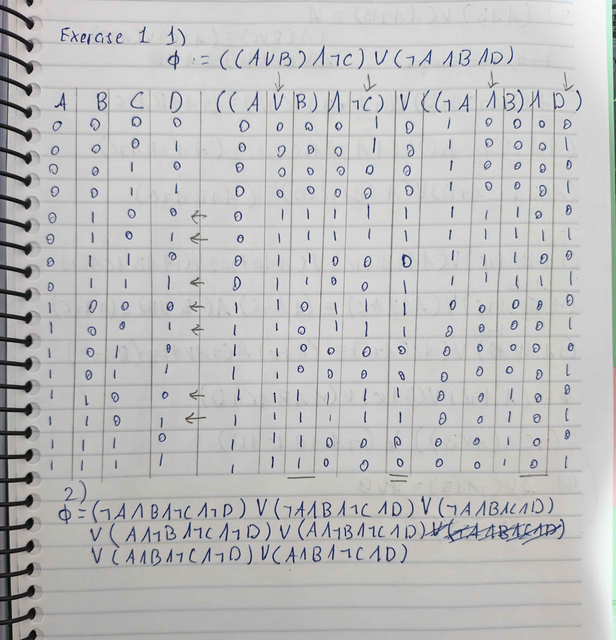 Exercise 1 1)
Φ := ((A∨B)∧¬C)∨(¬A∧B∧D)
A B C D ((A ∨ B) ∧ ¬C) ∨ ((¬A ∧ B) ∧ D)
0 0 0 0 0 0 0 0 1 0 1 0 0 0 0
0 0 0 1 0 0 0 0 1 0 1 0 0 0 1
0 0 1 0 0 0 0 0 0 0 1 0 0 0 0
0 0 1 1 0 0 0 0 0 0 1 0 0 0 1
0 1 0 0 ← 0 1 1 1 1 1 1 1 1 0 0
0 1 0 1 ← 0 1 1 1 1 1 1 1 1 1 1
0 1 1 0 0 1 1 0 0 0 1 1 1 0 0
0 1 1 1 ← 0 1 1 0 0 1 1 1 1 1 1
1 0 0 0 ← 1 1 0 1 1 1 0 0 0 0 0
1 0 0 1 ← 1 1 0 1 1 1 0 0 0 0 1
1 0 1 0 1 1 0 0 0 0 0 0 0 0 0
1 0 1 1 1 1 0 0 0 0 0 0 0 0 1
1 1 0 0 ← 1 1 1 1 1 1 0 0 1 0 0
1 1 0 1 ← 1 1 1 1 1 1 0 0 1 0 1
1 1 1 0 1 1 1 0 0 0 0 0 1 0 0
1 1 1 1 1 1 1 0 0 0 0 0 1 0 1
2)
Φ=(¬A∧B∧¬C∧¬D)∨(¬A∧B∧¬C∧D)∨(¬A∧B∧C∧D)
∨(A∧¬B∧¬C∧¬D)∨(A∧¬B∧¬C∧D)
∨(A∧B∧¬C∧¬D)∨(A∧B∧¬C∧D)